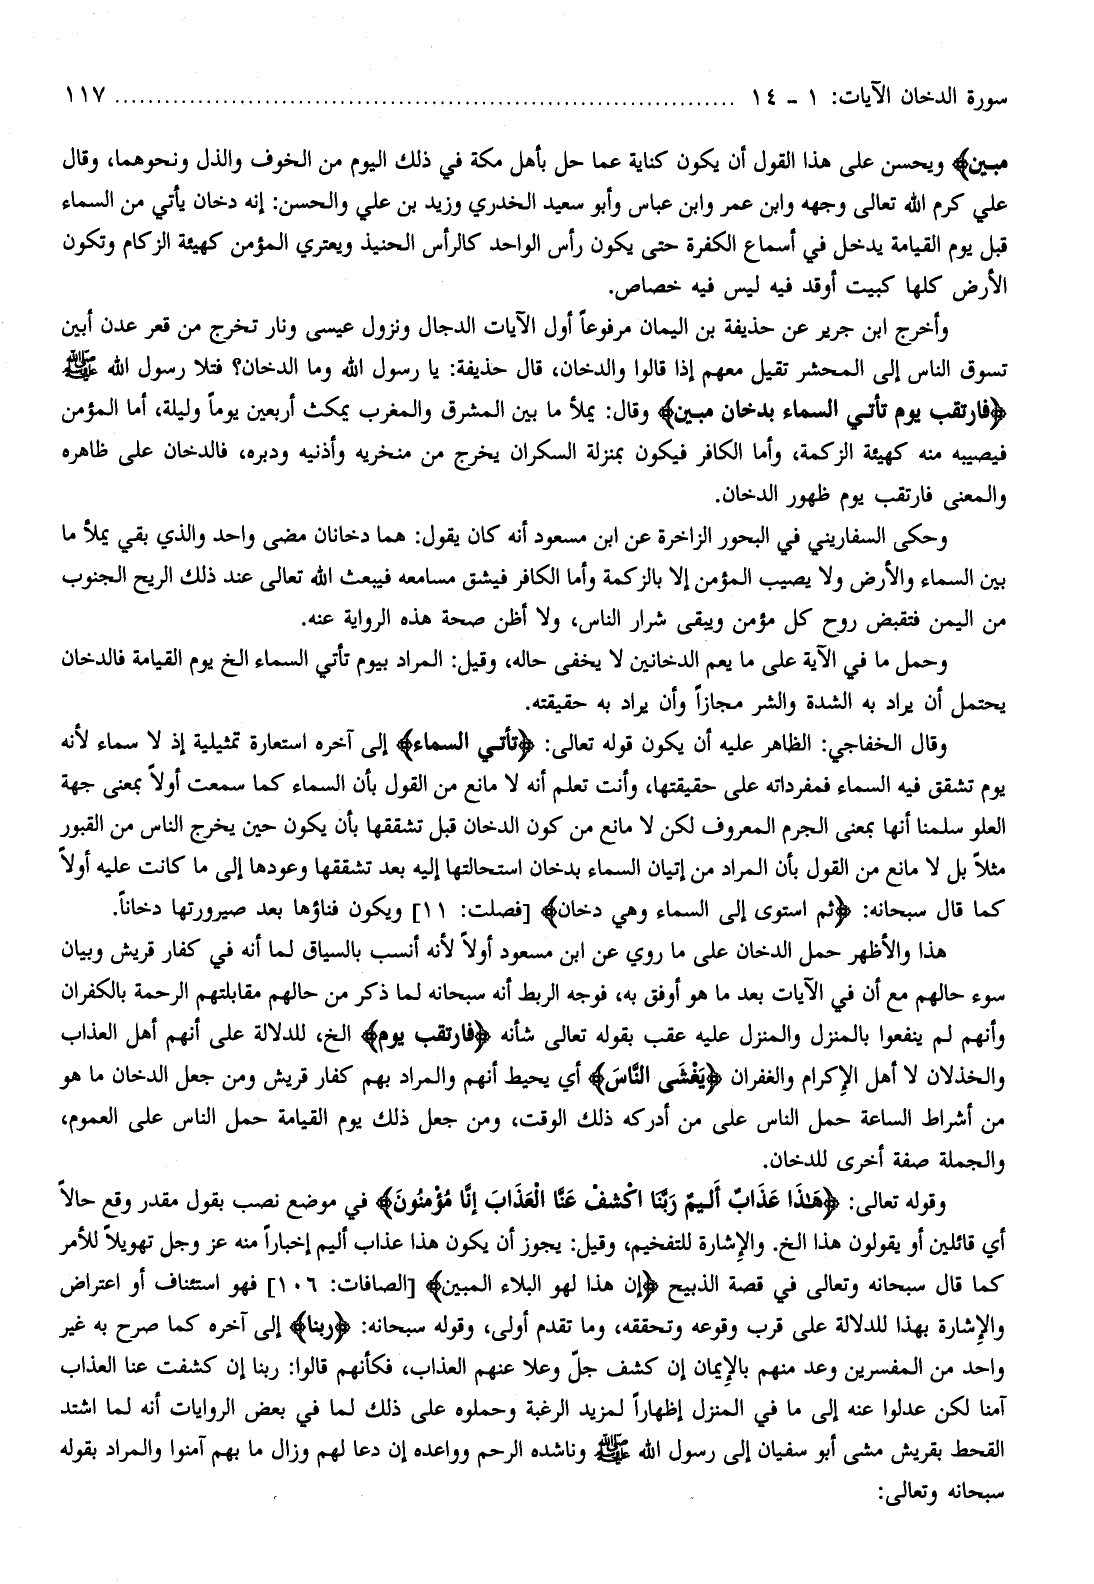 سورة الدخان الآيات: ١ - ١٤ ........................................................................ ١١٧
مبين﴾ ويحسن على هذا القول أن يكون كناية عما حل بأهل مكة في ذلك اليوم من الخوف والذل ونحوهما، وقال
علي كرم الله تعالى وجهه وابن عمر وابن عباس وأبو سعيد الخدري وزيد بن علي والحسن: إنه دخان يأتي من السماء
قبل يوم القيامة يدخل في أسماع الكفرة حتى يكون رأس الواحد كالرأس الحنيذ ويعتري المؤمن كهيئة الزكام وتكون
الأرض كلها كبيت أوقد فيه ليس فيه خصاص.
وأخرج ابن جرير عن حذيفة بن اليمان مرفوعاً أول الآيات الدجال ونزول عيسى ونار تخرج من قعر عدن أبين
تسوق الناس إلى المحشر تقيل معهم إذا قالوا والدخان، قال حذيفة: يا رسول الله وما الدخان؟ فتلا رسول الله ﷺ
﴿فارتقب يوم تأتي السماء بدخان مبين﴾ وقال: يملأ ما بين المشرق والمغرب يمكث أربعين يوماً وليلة، أما المؤمن
فيصيبه منه كهيئة الزكمة، وأما الكافر فيكون بمنزلة السكران يخرج من منخريه وأذنيه ودبره، فالدخان على ظاهره
والمعنى فارتقب يوم ظهور الدخان.
وحكى السفاريني في البحور الزاخرة عن ابن مسعود أنه كان يقول: هما دخانان مضى واحد والذي بقي يملأ ما
بين السماء والأرض ولا يصيب المؤمن إلا بالزكمة وأما الكافر فيشق مسامعه فيبعث الله تعالى عند ذلك الريح الجنوب
من اليمن فتقبض روح كل مؤمن ويبقى شرار الناس، ولا أظن صحة هذه الرواية عنه.
وحمل ما في الآية على ما يعم الدخانين لا يخفى حاله، وقيل: المراد بيوم تأتي السماء الخ يوم القيامة فالدخان
يحتمل أن يراد به الشدة والشر مجازاً وأن يراد به حقيقته.
وقال الخفاجي: الظاهر عليه أن يكون قوله تعالى: ﴿تأتي السماء﴾ إلى آخره استعارة تمثيلية إذ لا سماء لأنه
يوم تشقق فيه السماء فمفرداته على حقيقتها، وأنت تعلم أنه لا مانع من القول بأن السماء كما سمعت أولاً بمعنى جهة
العلو سلمنا أنها بمعنى الجرم المعروف لكن لا مانع من كون الدخان قبل تشققها بأن يكون حين يخرج الناس من القبور
مثلاً بل لا مانع من القول بأن المراد من إتيان السماء بدخان استحالتها إليه بعد تشققها وعودها إلى ما كانت عليه أولاً
كما قال سبحانه: ﴿ثم استوى إلى السماء وهي دخان﴾ [فصلت: ١١] ويكون فناؤها بعد صيرورتها دخاناً.
هذا والأظهر حمل الدخان على ما روي عن ابن مسعود أولاً لأنه أنسب بالسياق لما أنه في كفار قريش وبيان
سوء حالهم مع أن في الآيات بعد ما هو أوفق به، فوجه الربط أنه سبحانه لما ذكر من حالهم مقابلتهم الرحمة بالكفران
وأنهم لم ينفعوا بالمنزل والمنزل عليه عقب بقوله تعالى شأنه ﴿فارتقب يوم﴾ الخ، للدلالة على أنهم أهل العذاب
والخذلان لا أهل الإكرام والغفران ﴿يَغْشَى النَّاسَ﴾ أي يحيط أنهم والمراد بهم كفار قريش ومن جعل الدخان ما هو
من أشراط الساعة حمل الناس على من أدركه ذلك الوقت، ومن جعل ذلك يوم القيامة حمل الناس على العموم،
والجملة صفة أخرى للدخان.
وقوله تعالى: ﴿هَـٰذَا عَذَابٌ أَلِيمٌ رَبَّنَا اكْشِفْ عَنَّا الْعَذَابَ إِنَّا مُؤْمِنُونَ﴾ في موضع نصب بقول مقدر وقع حالاً
أي قائلين أو يقولون هذا الخ. والإشارة للتفخيم، وقيل: يجوز أن يكون هذا عذاب أليم إخباراً منه عز وجل تهويلاً للأمر
كما قال سبحانه وتعالى في قصة الذبيح ﴿إن هذا لهو البلاء المبين﴾ [الصافات: ١٠٦] فهو استئناف أو اعتراض
والإشارة بهذا للدلالة على قرب وقوعه وتحققه، وما تقدم أولى، وقوله سبحانه: ﴿ربنا﴾ إلى آخره كما صرح به غير
واحد من المفسرين وعد منهم بالإيمان إن كشف جلّ وعلا عنهم العذاب، فكأنهم قالوا: ربنا إن كشفت عنا العذاب
آمنا لكن عدلوا عنه إلى ما في المنزل إظهاراً لمزيد الرغبة وحملوه على ذلك لما في بعض الروايات أنه لما اشتد
القحط بقريش مشى أبو سفيان إلى رسول الله ﷺ وناشده الرحم وواعده إن دعا لهم وزال ما بهم آمنوا والمراد بقوله
سبحانه وتعالى: